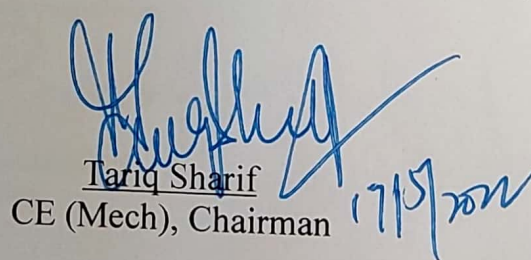 Tariq Sharif
CE (Mech), Chairman
17/5/2022